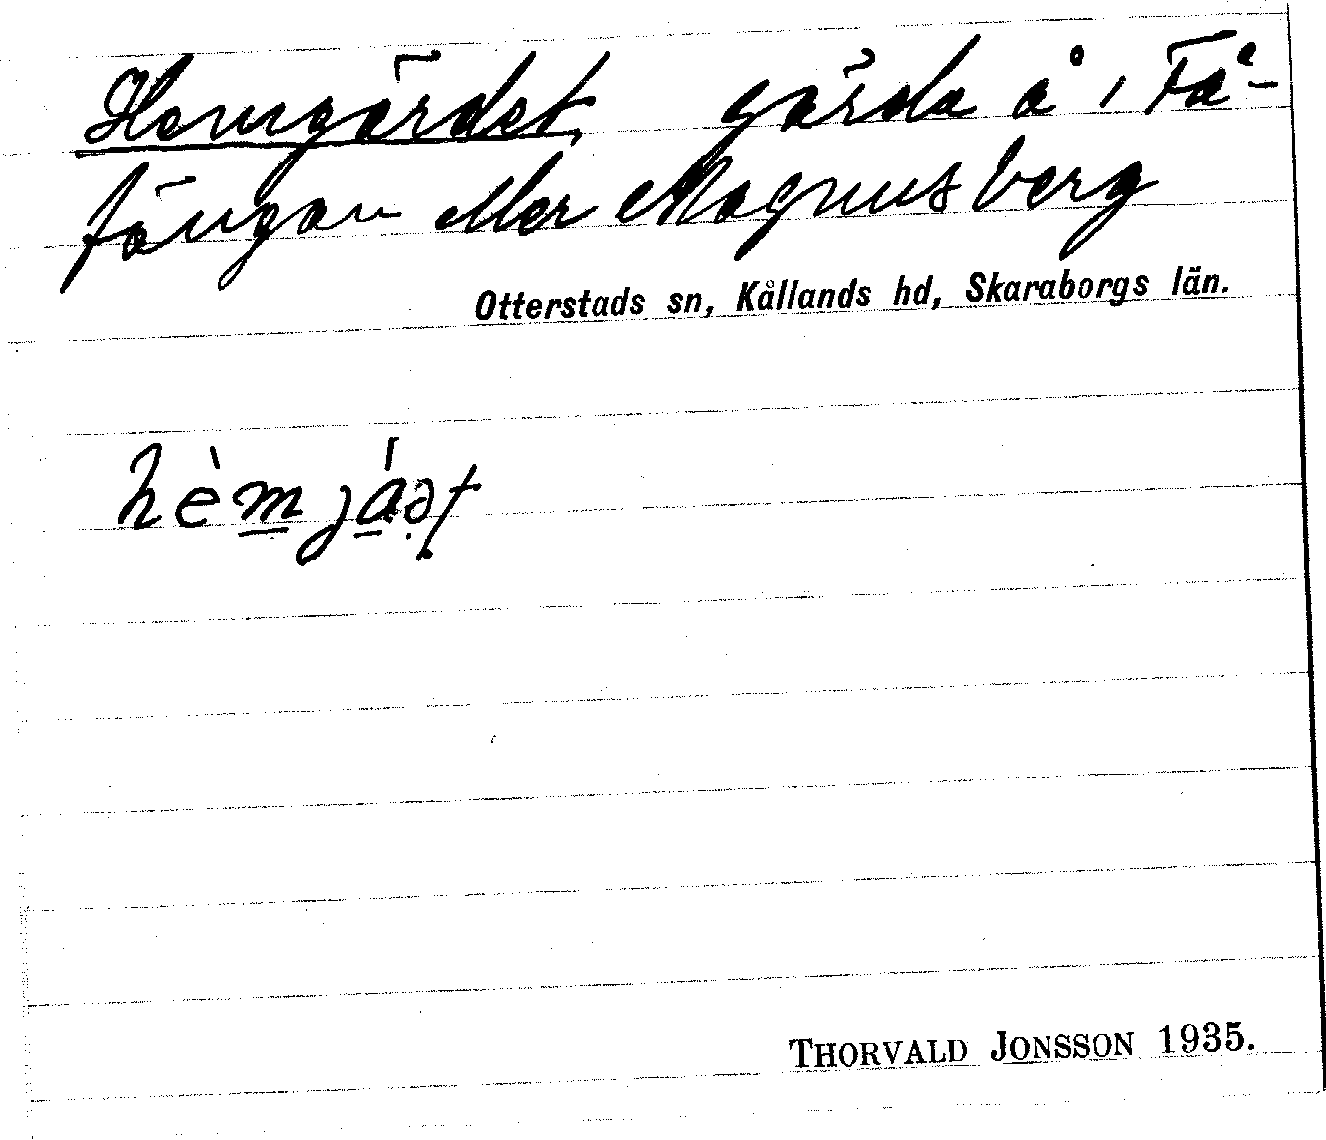 Hemgärdet, gärde å i Få-
fängan eller Magnusberg
Otterstads sn, Kållands hd, Skaraborgs län.
THORVALD JONSSON 1935.